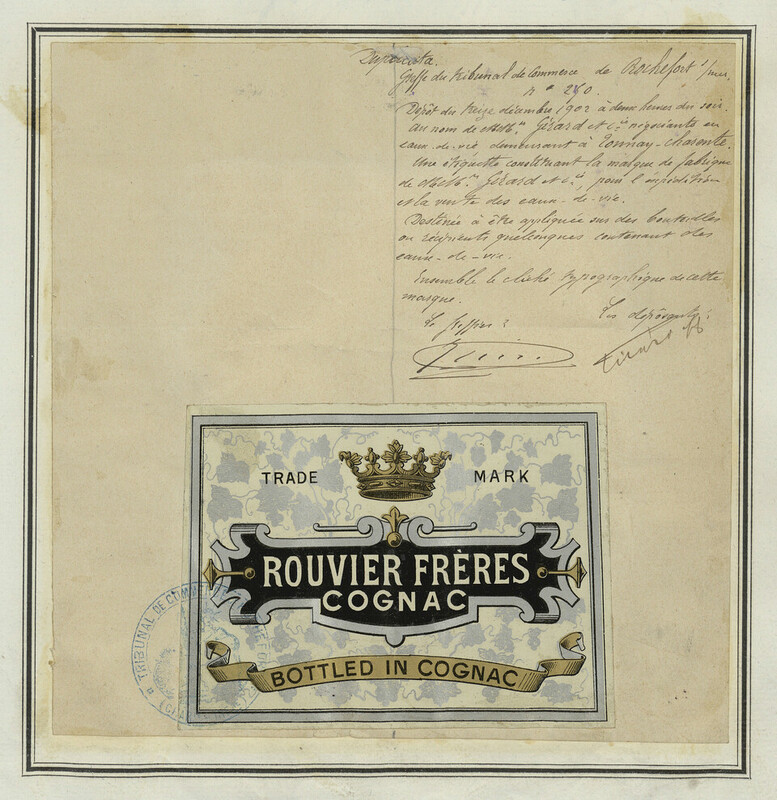 Greffe du tribunal de Commerce de Rochefort s/mer
n° 280.
Dépôt du treize décembre 1902 à deux heures du soir.
au nom de MM. Girard et Cie négociants en
eaux-de-vie demeurant à Tonnay-Charente.
Une étiquette constituant la marque de fabrique
de MM. Girard et Cie, pour l'expédition
et la vente des eaux-de-vie.
Destinée à être appliquée sur des bouteilles
ou récipients quelconques contenant des
eaux-de-vie.
Ensemble le cliché typographique de cette
marque.
Le greffier: Les déposants:
TRADE MARK
ROUVIER FRÈRES
COGNAC
BOTTLED IN COGNAC
TRIBUNAL DE COMMERCE